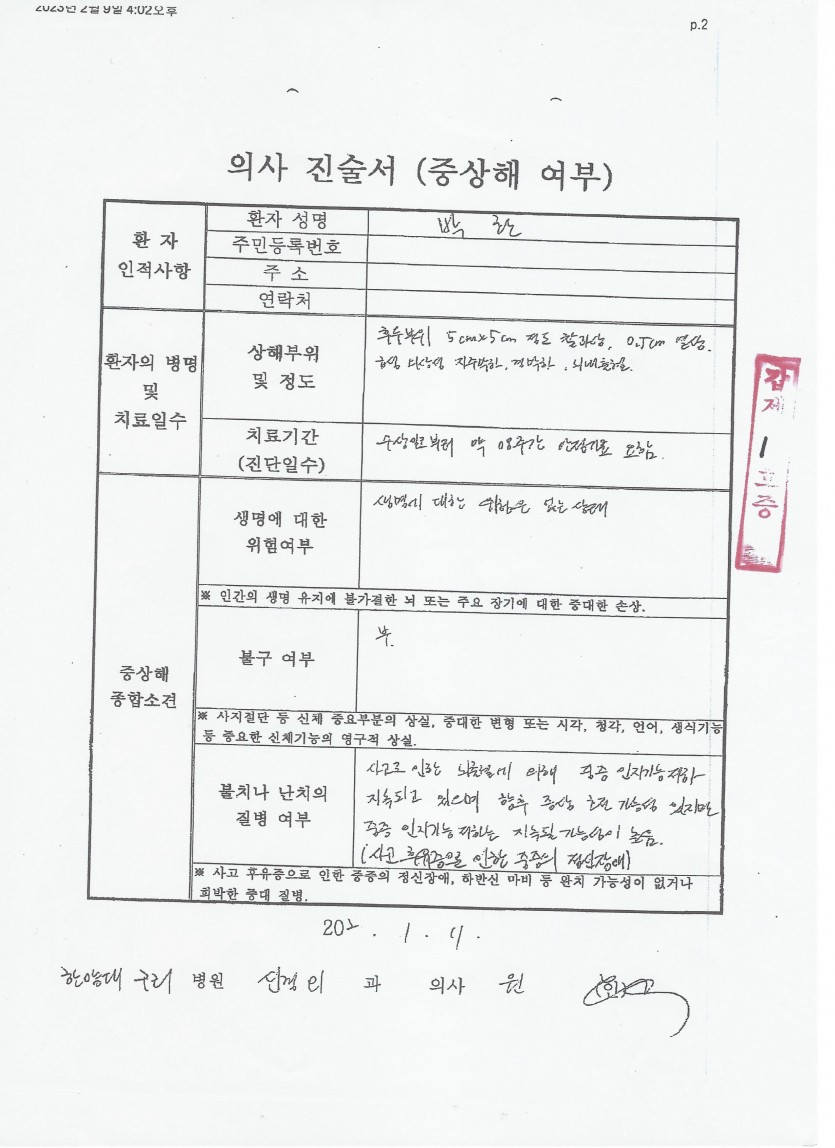 2023년 2월 9일 4:02오후
p.2
의사 진술서 (중상해 여부)
환 자
인적사항
환자 성명
박 란
주민등록번호
주 소
연락처
환자의 병명
및
치료일수
상해부위
및 정도
후두부위 5cm×5cm 정도 찰과상, 0.5cm 열상.
다상성 지주막하, 경막하, 뇌내출혈.
치료기간
(진단일수)
수상일로부터 약 08주간 안정가료 요함.
중상해
종합소견
생명에 대한
위험여부
생명에 대한 위험은 없는 상태
※ 인간의 생명 유지에 불가결한 뇌 또는 주요 장기에 대한 중대한 손상.
불구 여부
부.
※ 사지절단 등 신체 중요부분의 상실, 중대한 변형 또는 시각, 청각, 언어, 생식기능
등 중요한 신체기능의 영구적 상실.
불치나 난치의
질병 여부
사고로 인한 뇌출혈에 의해 중증 인지기능저하
지속되고 있으며 향후 증상 호전 가능성 있지만
중증 인지기능저하는 지속될 가능성이 높음.
(사고 후유증으로 인한 중증의 정신장애)
※ 사고 후유증으로 인한 중증의 정신장애, 하반신 마비 등 완치 가능성이 없거나
희박한 중대 질병.
202 . 1 . 11 .
한양대 구리 병원 신경외 과 의사 원
갑
제
1
호
증